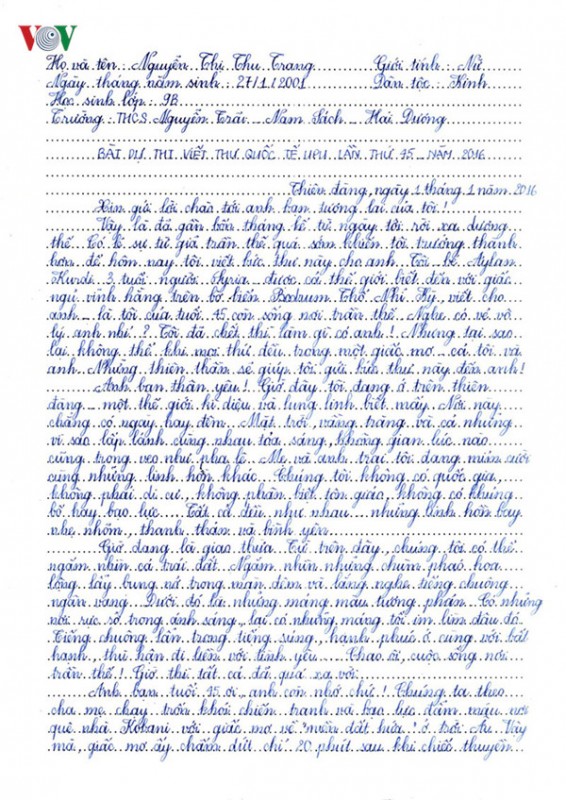 VOV
Họ và tên: Nguyễn Thị Thu Trang Giới tính: Nữ
Ngày tháng năm sinh: 27/1/2001 Dân tộc: Kinh
Học sinh lớp: 9B
Trường: THCS Nguyễn Trãi - Nam Sách - Hải Dương
BÀI DỰ THI VIẾT THƯ QUỐC TẾ UPU LẦN THỨ 45 - NĂM 2016
Thiên đàng, ngày 1 tháng 1 năm 2016
Xin gửi lời chào tới anh bạn tương lai của tôi!
Vậy là đã gần bốn tháng kể từ ngày tôi rời xa dương
thế. Có lẽ sự từ giã trần thế quá sớm khiến tôi trưởng thành
hơn để hôm nay tôi viết bức thư này cho anh. Tôi - bé Aylan
Kurdi 3 tuổi người Syria - được cả thế giới biết đến với giấc
ngủ vĩnh hằng trên bờ biển Bodrum Thổ Nhĩ Kỳ, viết cho
anh - là tôi của tuổi 45 còn sống nơi trần thế. Nghe có vẻ vô
lý anh nhỉ? Tôi đã chết thì làm gì có anh! Nhưng tại sao
lại không thể khi mọi thứ đều trong một giấc mơ - cả tôi và
anh. Những thiên thần sẽ giúp tôi gửi bức thư này đến anh!
Anh bạn thân yêu! Giờ đây tôi đang ở trên thiên
đàng - một thế giới kì diệu và lung linh biết mấy. Nơi này
chẳng có ngày hay đêm. Mặt trời, vầng trăng và cả những
vì sao lấp lánh cùng nhau tỏa sáng, không gian lúc nào
cũng trong veo như pha lê. Mẹ và anh trai tôi đang mỉm cười
cùng những linh hồn khác. Chúng tôi không có quốc gia,
không phải di cư, không phân biệt tôn giáo, không có khủng
bố hay bạo lực... Tất cả đều như nhau - những linh hồn bay
nhẹ nhõm, thanh thản và bình yên.
Giờ đang là giao thừa. Từ trên đây, chúng tôi có thể
ngắm nhìn cả trái đất. Ngắm nhìn những chùm pháo hoa
lộng lẫy bung nở trong màn đêm và lắng nghe tiếng chuông
ngân vang. Dưới đó là những mảng màu tương phản. Có những
nơi rực rỡ trong ánh sáng, lại có những mảng tối im lìm đâu đó.
Tiếng chuông lẫn trong tiếng súng, hạnh phúc ở cùng với bất
hạnh, thù hận đi liền với tình yêu... Chao ôi, cuộc sống nơi
trần thế! Giờ thì tất cả đã quá xa vời.
Anh bạn tuổi 45 ơi, anh còn nhớ chứ! Chúng ta theo
cha mẹ chạy trốn khỏi chiến tranh và bạo lực đẫm máu nơi
quê nhà Kobani với giấc mơ về "miền đất hứa" ở trời Âu. Vậy
mà, giấc mơ ấy chấm dứt chỉ 20 phút sau khi chiếc thuyền